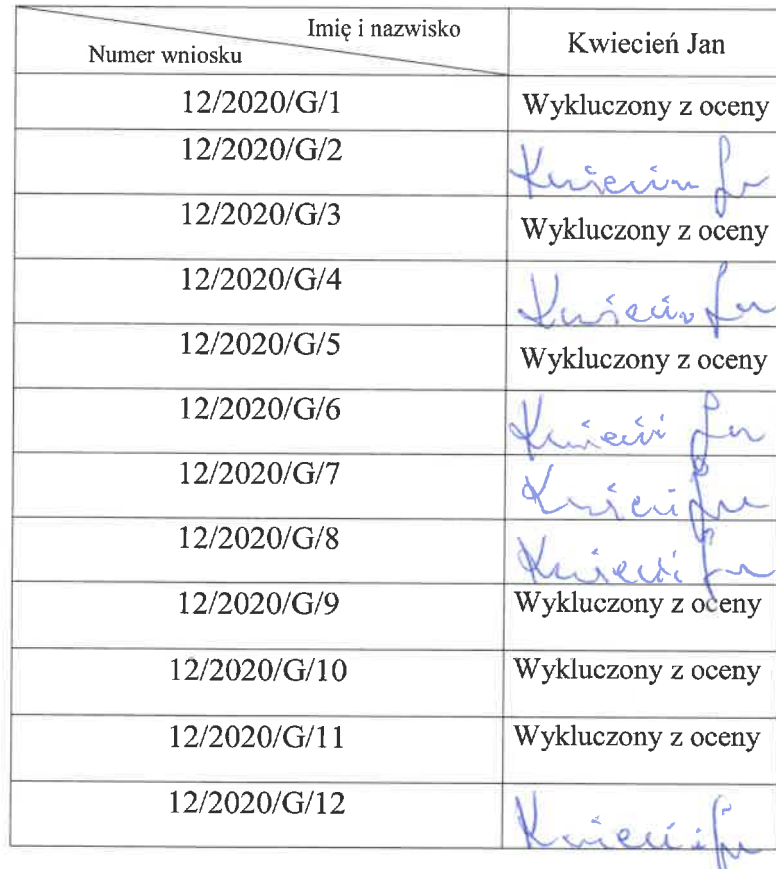 Imię i nazwisko
Numer wniosku
Kwiecień Jan
12/2020/G/1 Wykluczony z oceny
12/2020/G/2 Kwiecień Jan
12/2020/G/3 Wykluczony z oceny
12/2020/G/4 Kwiecień Jan
12/2020/G/5 Wykluczony z oceny
12/2020/G/6 Kwiecień Jan
12/2020/G/7 Kwiecień Jan
12/2020/G/8 Kwiecień Jan
12/2020/G/9 Wykluczony z oceny
12/2020/G/10 Wykluczony z oceny
12/2020/G/11 Wykluczony z oceny
12/2020/G/12 Kwiecień Jan